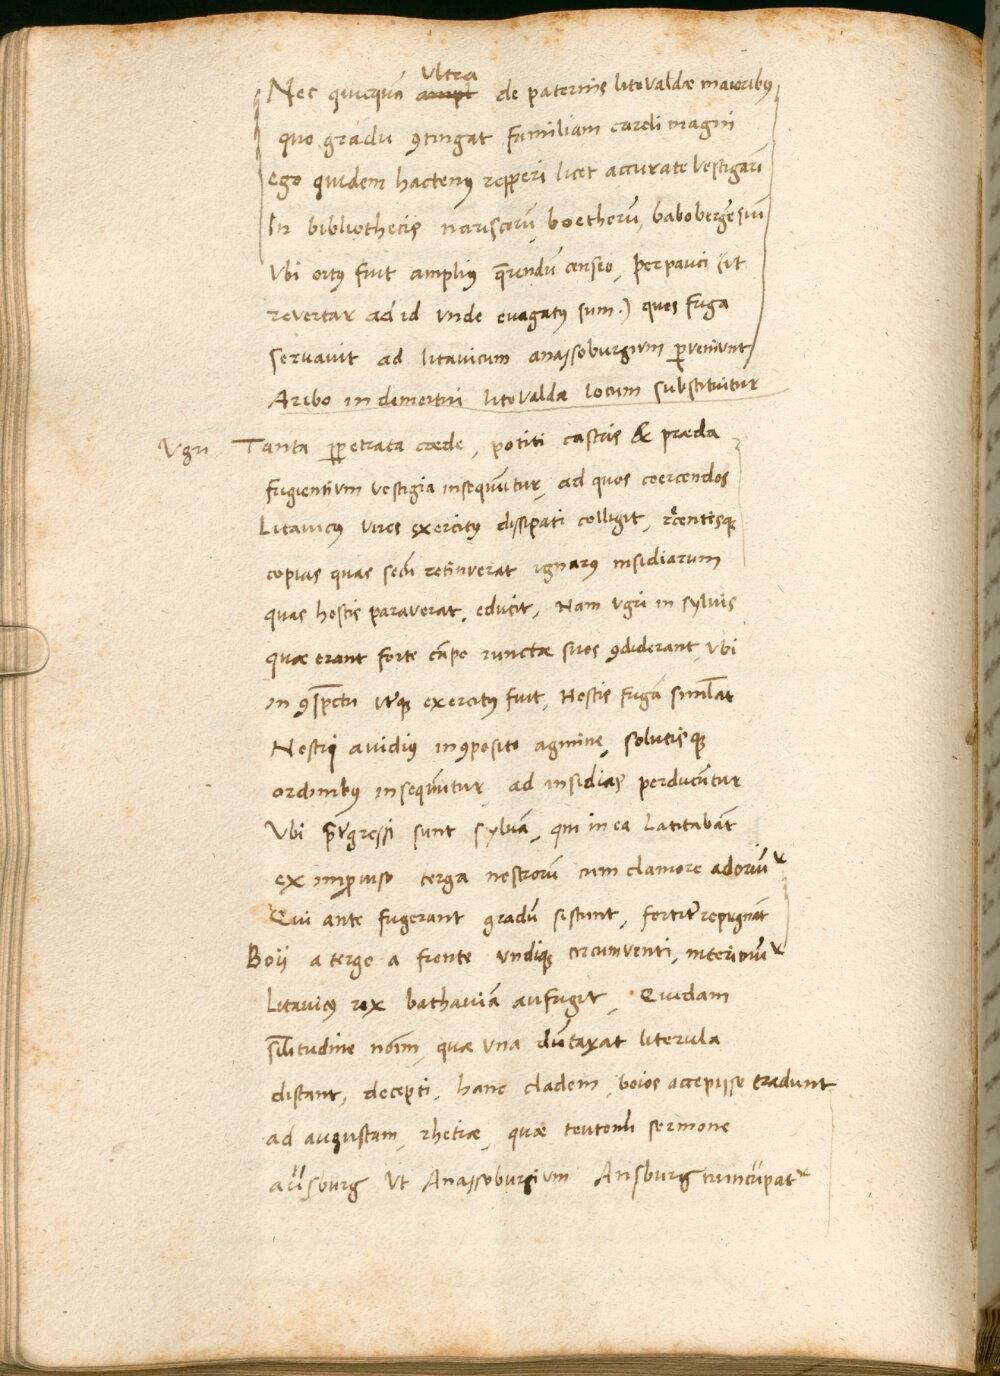 Ultra
Nec quicquã ampl de paternis litovaldæ maioribꝰ
quo gradu ꝯtingat familiam caroli magni
ego quidem hactenꝰ repperi licet accurate vestigarĩ
In bibliothecis nariscorũ, boethorũ, babobergẽsiũ
Vbi ortꝰ fuit ampliꝰ q̃rendũ censeo, Perpauci (ut
revertar ad id unde evagatꝰ sum.) quos fuga
servavit ad litavicum anassoburgium ꝑveniunt
Aribo in demortui litovaldæ locum substituitur
Vgri Tanta ꝑpetrata cæde, potiti castris & præda
fugientium vestigia insequũtur, ad quos coercendos
Litavicꝰ vires exercitꝰ dissipati colligit, rẽcentisqꝫ
copias quas secũ retinuerat ignarꝰ insidiarum
quas hostis paraverat, educit, Nam vgri in sylvis
quæ erant forte cãpo iunctæ suos ꝯdiderant, Vbi
in ꝯspectu uterqꝫ exercitꝰ fuit, Hostis fugã simulat
Nostri avidiꝰ inꝯposito agmine, solutisqꝫ
ordinibꝰ insequũtur, ad insidias perducũtur
Vbi p̃tergressi sunt sylvã, qui in ea latitabãt
ex improviso terga nostrorũ cum clamore adoriũtur
Qui ante fugerant gradũ sistunt, fortiter repugnãt
Boij a tergo a fronte undiqꝫ circumventi, interimũtur
Litavicꝰ rex bathaviã aufugit, Quidam
sil̃itudine noĩm, quæ una dũtaxat literula
distant, decepti, hanc cladem, boios accepisse tradunt
ad augustam, rhetiæ, quæ teutonũ sermone
aũsburg ut Anassoburgium Ansburg nuncupatur